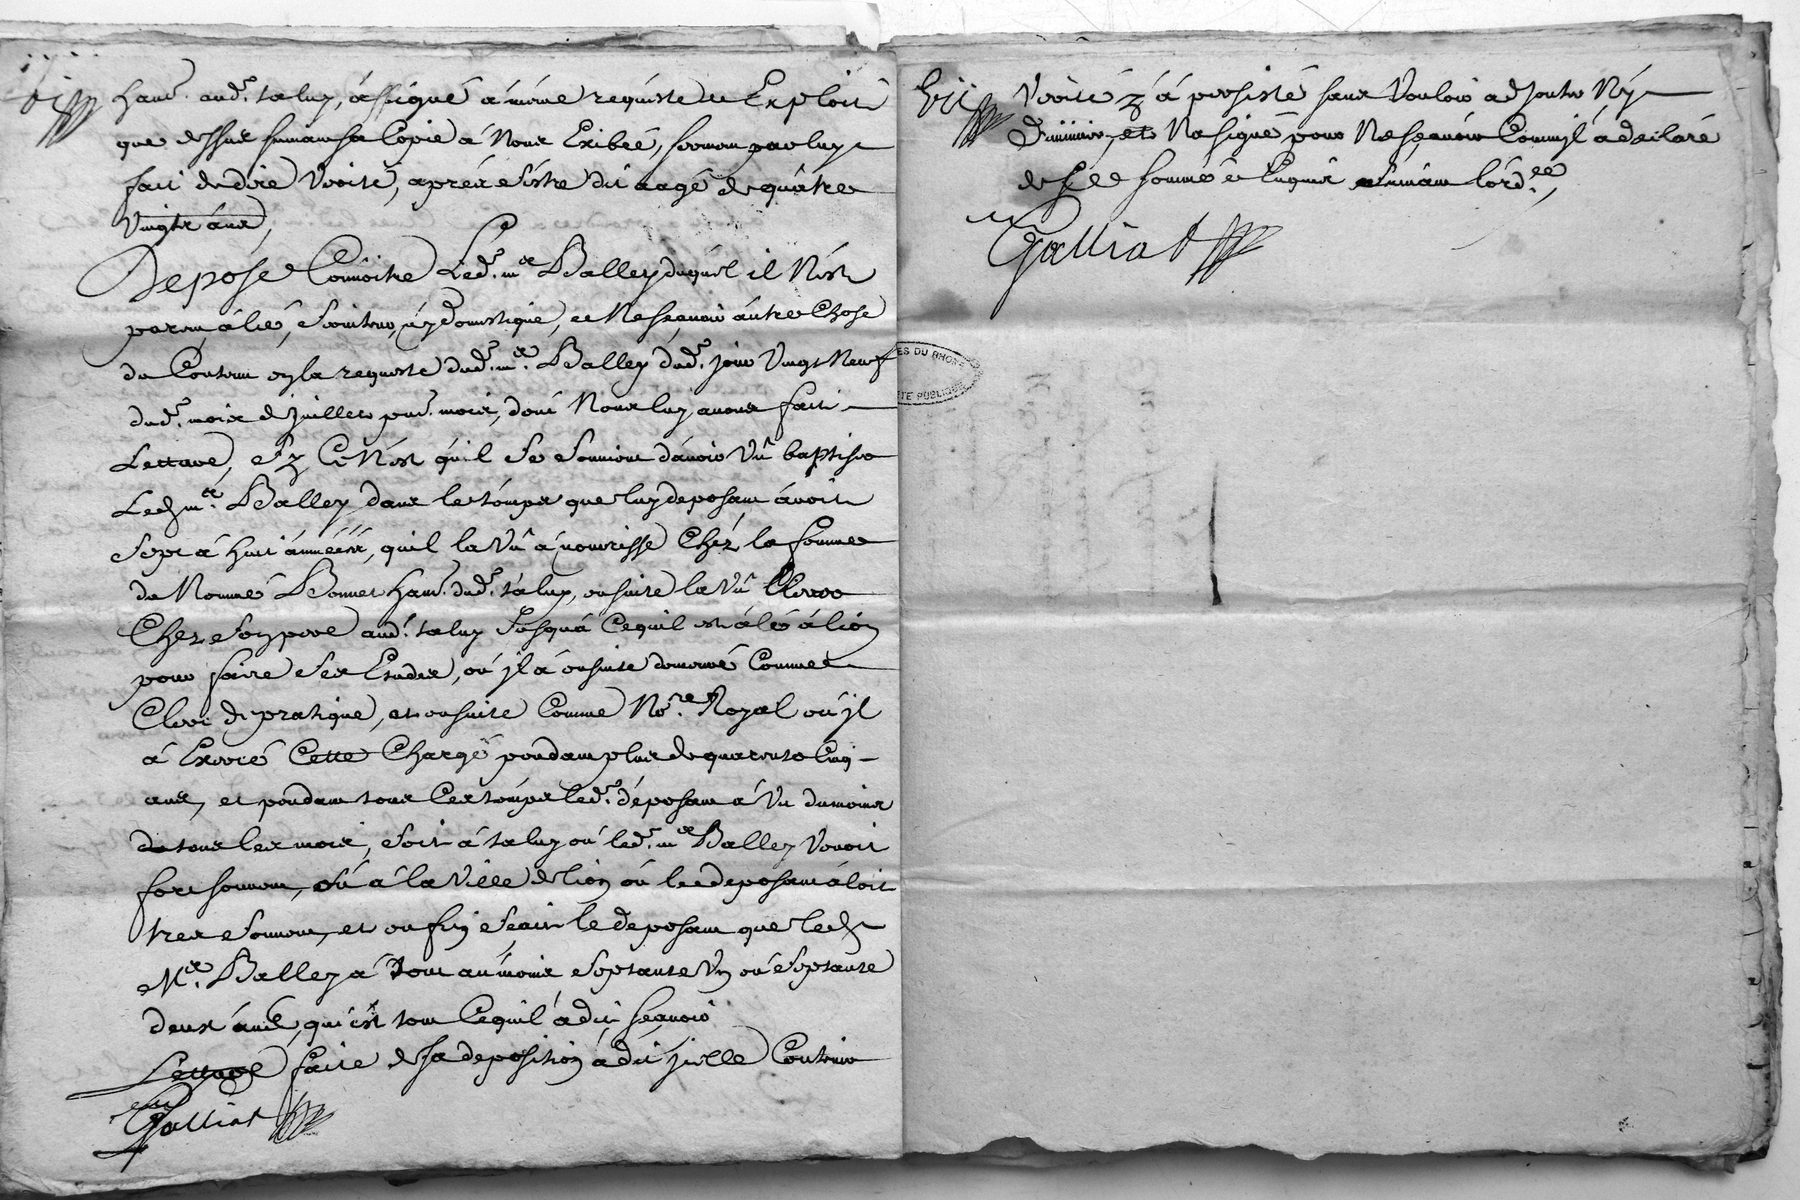 habt. audt. taluy, assigné a même requiste et Exploit
que dessus suivant sa Copie à Nous Exibée, serment par luy
fait de dire Verité, aprés s'estre dit aagé de quâtre
vingts ans,
Depose Connôitre Ledt. mr. Balley duquel il N'est
parent, alié, seruiteur, ny Domestique, et Ne sçauoir autre Chose
du Contenu en la requeste dudt. mr. Balley dudt. jour Vingt Neuf
dudt. mois de juillet pnt. mois, dont Nous luy auons fait
Lecture, Ce N'est qu'il Se souuient dauoir Vû baptiser
Led. mr. Balley dans le temps que luy deposant auoit
Sept à huit années, quil la Vû a nourrisse Chéz la femme
du Nommé Bonnet habt. dudt. taluy, ensuite la Vû Eleué
Chez Son pere audt. taluy Jusqua Cequil est alé à lion
pour faire Ses Etudes, ou jl à ensuite demeuré Comme
Clerc de pratique, et ensuite Comme Nore. Royal ou jl
à Exercé Cette Charge pendant plus de quarente Cinq
ans, et pendant tous Ces temps ledt. deposant à Vu du moins
de tous les mois, Soit à taluy ou ledt. mr Balley Venoit
fort souuent, ou à la Ville de lion ou le deposant aloit
tres Souuent, et enfin Sçait le deposant que led.
Mr. Balley a tout au moins Septante Un ou Septante
deux ans, qui est tout Cequil a dit sçauoir
Lecture faite de Sa deposition à dit j'celle Contenir
Galliat
Verité, y à persisté sans Vouloir adjouter Ny
Diminuer, et Na signé pour Ne sçauoir Comm'il à declaré
de Ce sommé et Enquis Suivant l'ordce.,
Galliat
ES DU RHONE
ETE PUBLIQUE